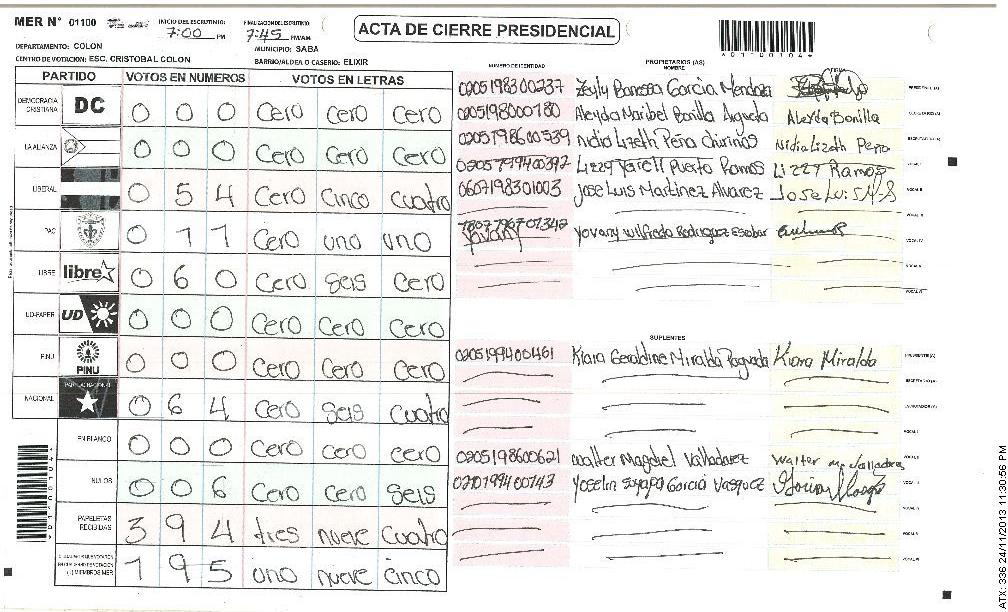 MER N° 01100 INICIO DEL ESCRUTINIO 7:00 PM FINALIZACION DEL ESCRUTINIO 7:45 PM/AM ACTA DE CIERRE PRESIDENCIAL
DEPARTAMENTO: COLON MUNICIPIO: SABA *01100104*
CENTRO DE VOTACION: ESC. CRISTOBAL COLON BARRIO/ALDEA O CASERIO: ELIXIR
PARTIDO VOTOS EN NUMEROS VOTOS EN LETRAS
DEMOCRACIA CRISTIANA DC 0 0 0 Cero Cero Cero
LA ALIANZA 0 0 0 Cero Cero Cero
LIBERAL 0 5 4 Cero Cinco Cuatro
PAC 0 1 1 Cero uno uno
LIBRE libre 0 6 0 Cero Seis Cero
UD-FAPER UD 0 0 0 Cero Cero Cero
PINU PINU 0 0 0 Cero Cero Cero
NACIONAL PARTIDO NACIONAL 0 6 4 Cero Seis Cuatro
EN BLANCO 0 0 0 Cero Cero Cero
NULOS 0 0 6 Cero Cero Seis
PAPELETAS RECIBIDAS 3 9 4 tres nueve Cuatro
(+) MIEMBROS MER 1 9 5 uno nueve cinco
NUMERO DE IDENTIDAD PROPIETARIOS (AS) NOMBRE FIRMA
0205198300237 Zeyly Banessa Garcia Mendoza PRESIDENTE (A)
0205198000780 Aleyda Maribel Bonilla Aleyda Bonilla SECRETARIO (A)
0205198600539 Nidia Lizeth Peña Nidia Lizeth Peña
Lizzy Yarell Puerto Ramos Lizzy Ramos
0607198301003 Jose Luis Martinez Alvarez VOCAL II
VOCAL III
Yovany Yovany Wilfredo Rodriguez Escobar VOCAL IV
VOCAL V
VOCAL VI
SUPLENTES
0205199400461 Kiara Geraldine Miralda Kiara Miralda PRESIDENTE (A)
SECRETARIO (A)
ESCRUTADOR (A)
VOCAL I
0205198600621 Walter Magdiel Valladarez VOCAL II
0210199400143 Yoselin Suyapa Garcia Vasquez VOCAL III
VOCAL IV
VOCAL V
VOCAL VI
ATX: 336 24/11/2013 11:30:56 PM